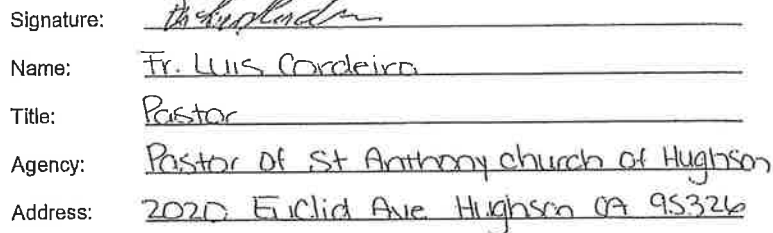 Signature:
Name: Fr. Luis Cordeiro
Title: Pastor
Agency: Pastor of St Anthony church of Hughson
Address: 2020 Euclid Ave Hughson CA 95326